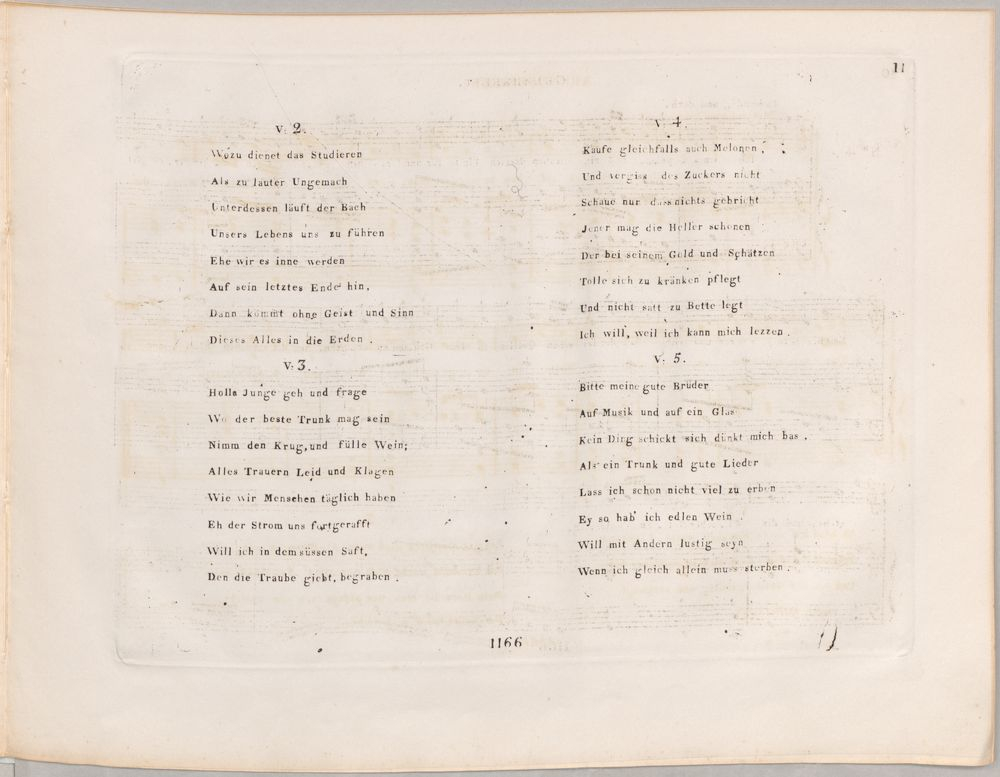 11
V. 2.
Wozu dienet das Studieren
Als zu lauter Ungemach
Unterdessen läuft der Bach
Unsers Lebens uns zu führen
Ehe wir es inne werden
Auf sein letztes Ende hin,
Dann kömmt ohne Geist und Sinn
Dieses Alles in die Erden .
V. 3.
Holla Junge geh und frage
Wo der beste Trunk mag sein
Nimm den Krug, und fülle Wein;
Alles Trauern Leid und Klagen
Wie wir Menschen täglich haben
Eh der Strom uns fortgerafft
Will ich in dem süssen Saft,
Den die Traube giebt, begraben .
V. 4.
Kaufe gleichfalls auch Melonen,
Und vergiss des Zuckers nicht
Schaue nur dass nichts gebricht
Jener mag die Heller schonen
Der bei seinem Gold und Schätzen
Tolle sich zu kränken pflegt
Und nicht satt zu Bette legt
Ich will, weil ich kann mich lezzen .
V. 5.
Bitte meine gute Brüder
Auf Musik und auf ein Glas
Kein Ding schickt sich dünkt mich bas .
Als ein Trunk und gute Lieder
Lass ich schon nicht viel zu erben
Ey so hab' ich edlen Wein .
Will mit Andern lustig seyn
Wenn ich gleich allein muss sterben .
1166